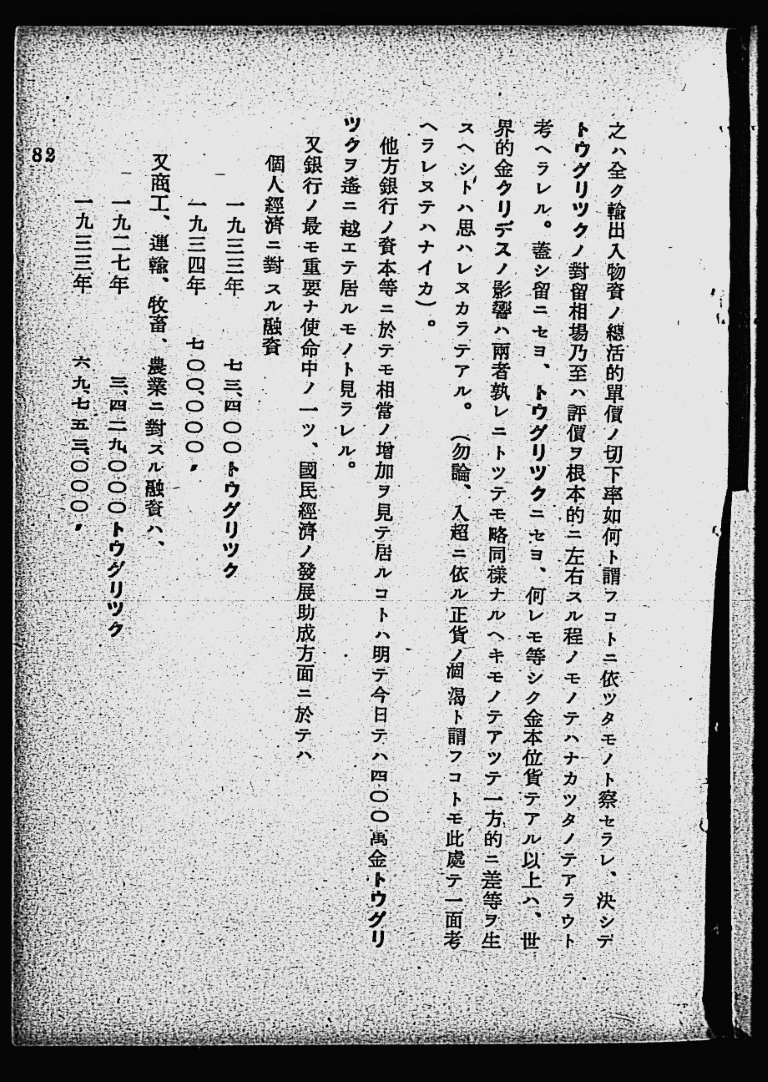 之ハ全ク輸出入物資ノ總活的單價ノ切下率如何ト謂フコトニ依ツタモノト察セラレ、決シデ
トウグリツクノ對留相場乃至ハ評價ヲ根本的ニ左右スル程ノモノテハナカツタノテアラウト
考ヘラレル。蓋シ留ニセヨ、トウグリツクニセヨ、何レモ等シク金本位貨テアル以上ハ、世
界的金クリデスノ影響ハ兩者孰レニトツテモ略同樣ナルヘキモノテアツテ一方的ニ差等ヲ生
スヘシトハ思ハレヌカラテアル。(勿論、入超ニ依ル正貨ノ涸渴ト謂フコトモ此處テ一面考
ヘラレヌテハナイカ)。
他方銀行ノ資本等ニ於テモ相當ノ增加ヲ見テ居ルコトハ明テ今日テハ四〇〇萬金トウグリ
ツクヲ遙ニ越エテ居ルモノト見ラレル。
又銀行ノ最モ重要ナ使命中ノ一ツ、國民經濟ノ發展助成方面ニ於テハ
個人經濟ニ對スル融資
一九三三年 七三、四〇〇トウグリツク
一九三四年 七〇〇、〇〇〇 〃
又商工、運輸、牧畜、農業ニ對スル融資ハ、
一九二七年 三、四二九、〇〇〇トウグリツク
一九三三年 六九、七五三、〇〇〇 〃
82